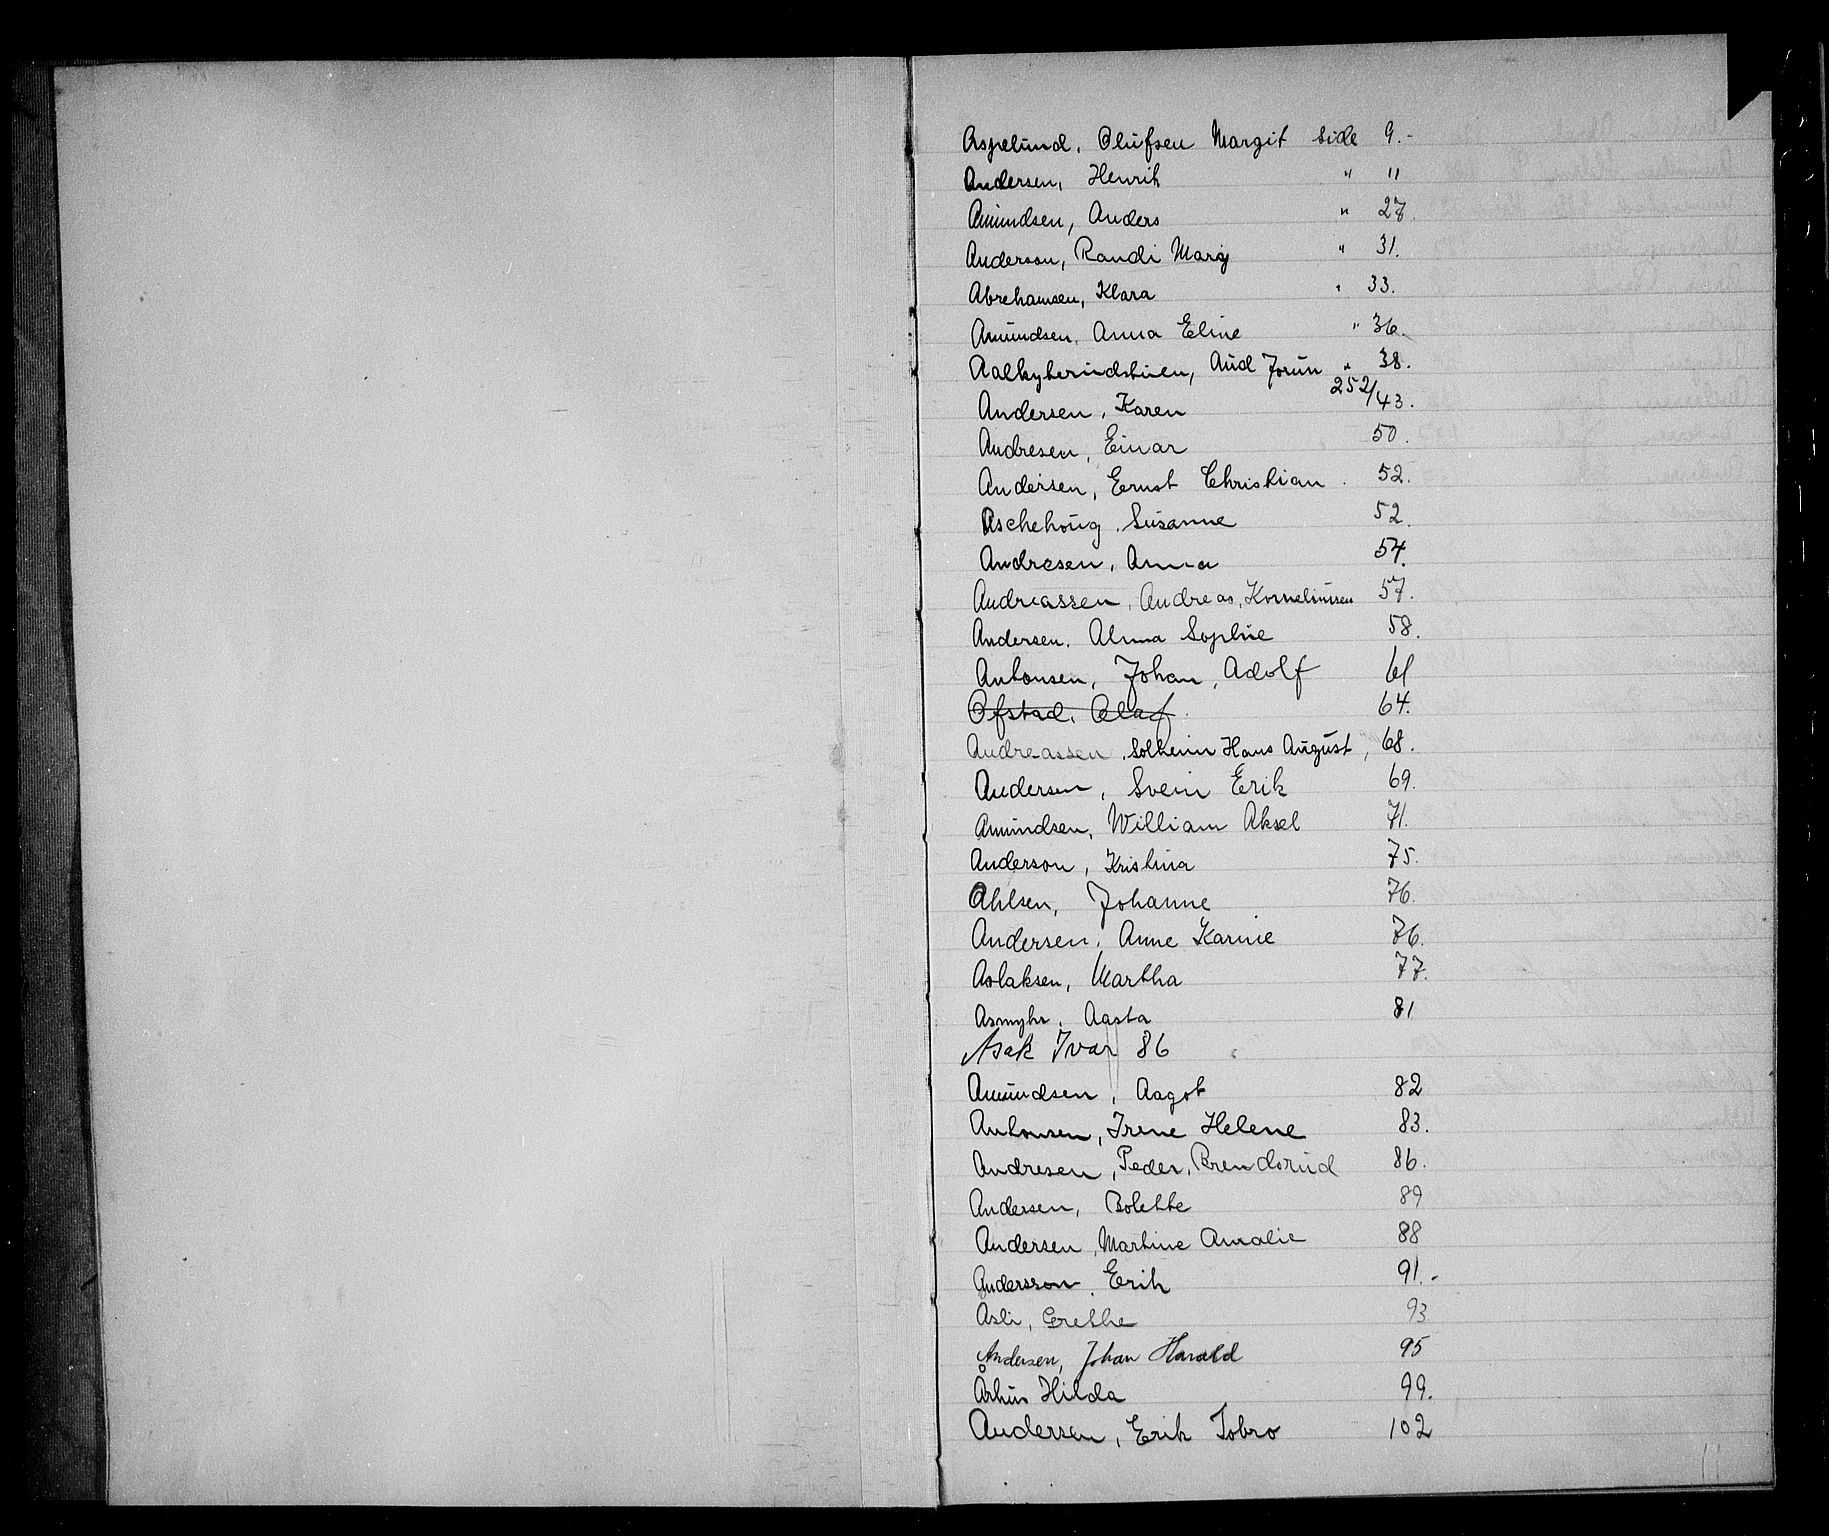 Aspelund, Olufsen Margit Side 9.-
Andersen, Henrik " 11
Amundsen, Anders " 27.
Anderson, Randi Marg " 31.
Abrehamsen, Klara " 33.
Amundsen, Anna Eline " 36.
Aud Jorun " 38.
Andersen, Karen 252/43.
Andresen, Einar 50.
Andersen, Ernst Christian. 52.
Aschehoug, Susanne 52.
Andresen, Anna 54.
Andreassen, Andreas, Korneliussen 57.
Andersen, Alma Sophie 58.
Antonsen, Johan, Adolf 61
Ofstad, Olaf. 64.
Andreassen, Solheim Hans August, 68.
Andersen, Svein Erik 69.
Amundsen, William Aksel 71.
Anderson, Kristina 75.
Ahlsen, Johanne 76.
Andersen, Anne Karine 76.
Aslaksen, Martha 77.
Asmyhr, Aasta 81
Asak Ivar 86
Amundsen, Aagot 82
Antonsen, Irene Helene 83.
Andresen, Peder, Brendsrud 86.
Andersen, Bolette 89
Andersen, Martine Amalie 88
Andersson, Erik 91.-
Asli, Grethe 93
Andersen, Johan Harald 95
Århus Hilda 99.
Andersen, Erik Tobro 102